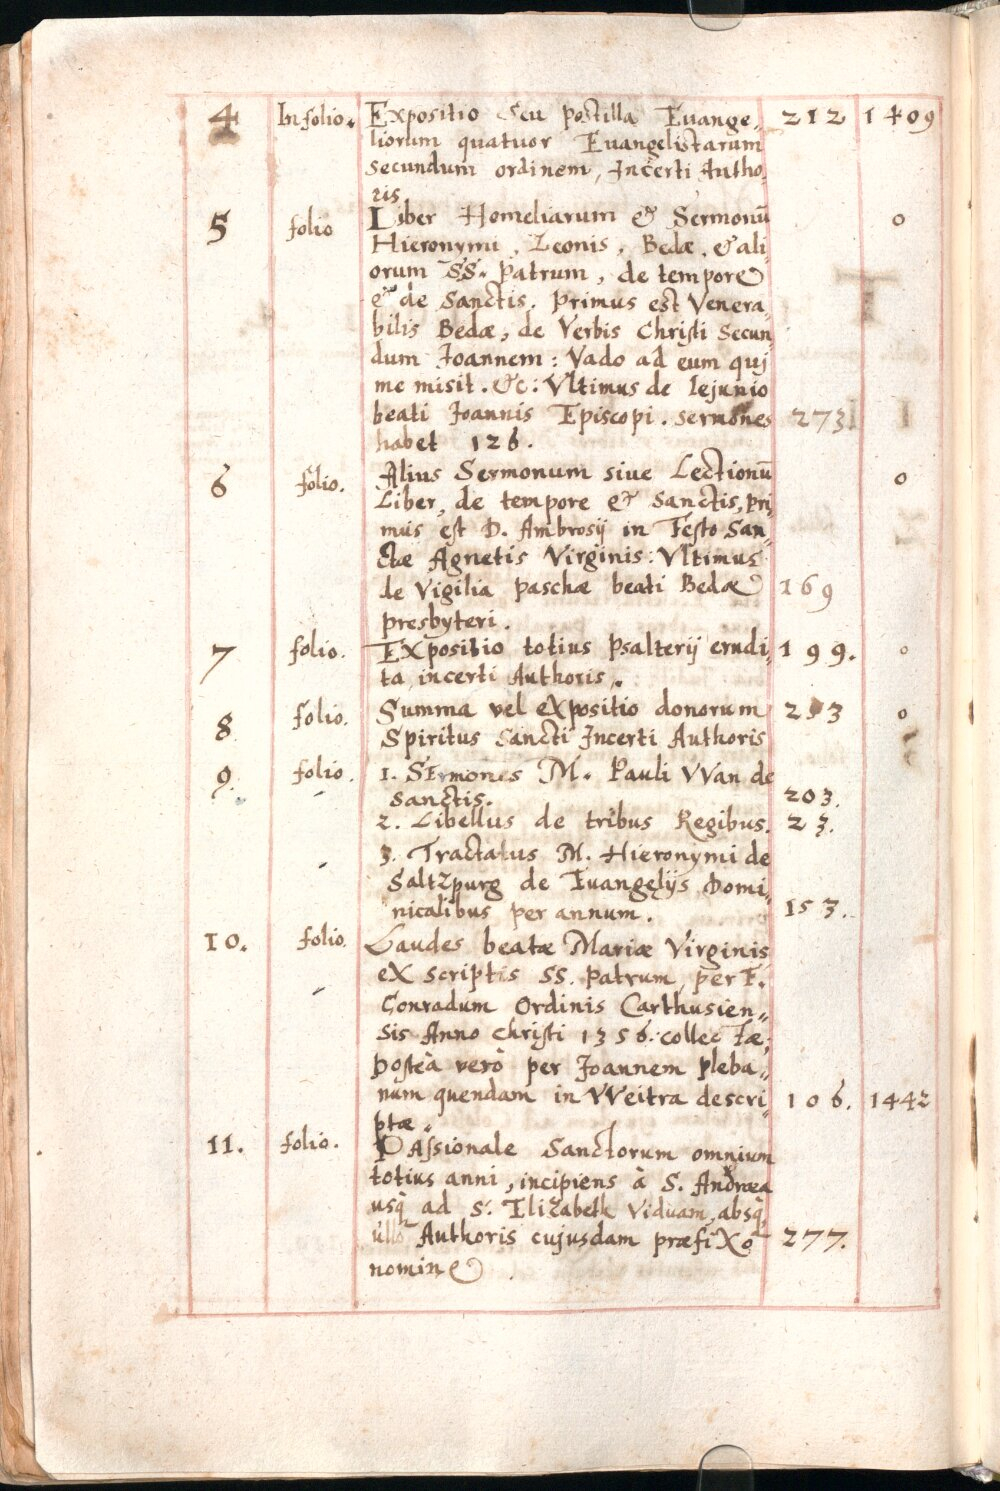 4 In folio. Expositio seu postilla Euange„ 212 1409
liorum quatuor Euangelistarum
secundum ordinem, Incerti Autho„
ris
5 folio Liber Homeliarum & Sermonū 0
Hieronymi, Leonis, Bedæ, & ali
orum SS. Patrum, de tempore
& de Sanctis. Primus est Venera„
bilis Bedæ, de Verbis Christi Secun„
dum Joannem: Vado ad eum quj
me misit. &c: Vltimus de Iejunio
beati Joannis Episcopi. sermones 273
habet 126.
6 folio. Alius Sermonum siue Lectionū 0
Liber, de tempore & Sanctis, Pri„
mus est D. Ambrosij in Festo San„
ctæ Agnetis Virginis: Vltimus
de Vigilia Paschæ beati Bedæ 169
presbyteri.
7 folio. Expositio totius Psalterij erudi„ 199. 0
ta, incerti Authoris.
8 folio. Summa vel expositio donorum 253 0
Spiritus Sancti Incerti Authoris
9. folio. 1. Sermones M. Pauli VVan de
Sanctis. 203.
2. Libellus de tribus Regibus. 23.
3. Tractatus M. Hieronymi de
Saltzpurg de Euangelijs Domi„
nicalibus per annum. 153.
10. folio. Laudes beatæ Mariæ Virginis
ex scriptis SS. Patrum, per F.
Conradum Ordinis Carthusien„
sis Anno Christi 1356. collectæ,
posteà verò per Joannem pleba„
num quendam in VVeitra descri„ 106. 1442
ptæ.
11. folio. PAssionale Sanctorum omnium
totius anni, incipiens à S. Andræa
usq̀ ad S. Elizabeth Viduam, absq̀
ullo Authoris cujusdam præfixo 277.
nomine